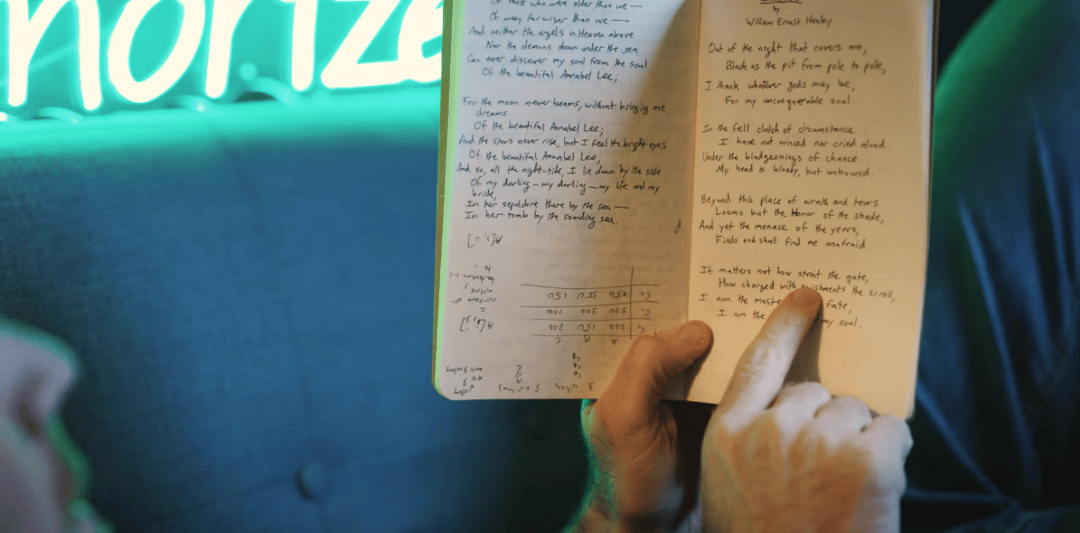 norize
Of those who were older than we —
Of many far wiser than we —
And neither the angels in Heaven above
Nor the demons down under the sea
Can ever dissever my soul from the soul
Of the beautiful Annabel Lee;
For the moon never beams, without bringing me
dreams
Of the beautiful Annabel Lee;
And the stars never rise, but I feel the bright eyes
Of the beautiful Annabel Lee;
And so, all the night-tide, I lie down by the side
Of my darling — my darling — my life and my
bride,
In her sepulchre there by the sea —
In her tomb by the sounding sea.
by
William Ernst Henley
Out of the night that covers me,
Black as the pit from pole to pole,
I thank whatever gods may be,
For my unconquerable soul.
In the fell clutch of circumstance
I have not winced nor cried aloud.
Under the bludgeonings of chance
My head is bloody, but unbowed.
Beyond this place of wrath and tears
Looms but the Horror of the shade,
And yet the menace of the years,
Finds and shall find me unafraid.
It matters not how strait the gate,
How charged with the scroll,
I am the fate,
I am the my soul.
450 350 150
500 200 100
550 150 200